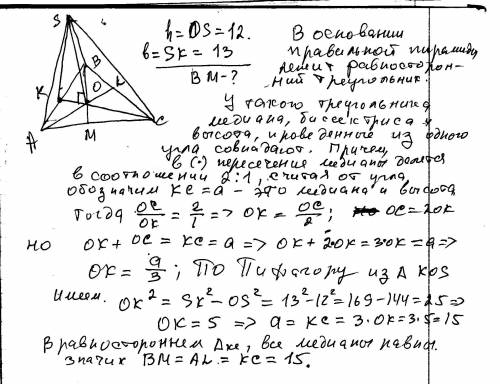 S
h = OS = 12.
b = SK = 13
BM - ?
B
K
L
O
A
M
C
В основании
правильной пирамиды
лежит равносторон-
ний треугольник.
У такого треугольника
медиана, биссектриса и
высота, проведенные из одного
угла совпадают. Причем,
в (•) пересечение медианы делятся
в соотношении 2:1, считая от угла,
обозначим KC = a - это медиана и высота
Тогда OC/OK = 2/1 => OK = OC/2; OC = 2OK
но OK + OC = KC = a => OK + 2·OK = 3·OK = a =>
OK = a/3; По Пифагору из Δ KOS
Имеем. OK² = SK² - OS² = 13² - 12² = 169 - 144 = 25 =>
OK = 5 => a = KC = 3·OK = 3·5 = 15
В равностороннем Δке, все медианы равны.
значит BM = AL = KC = 15.